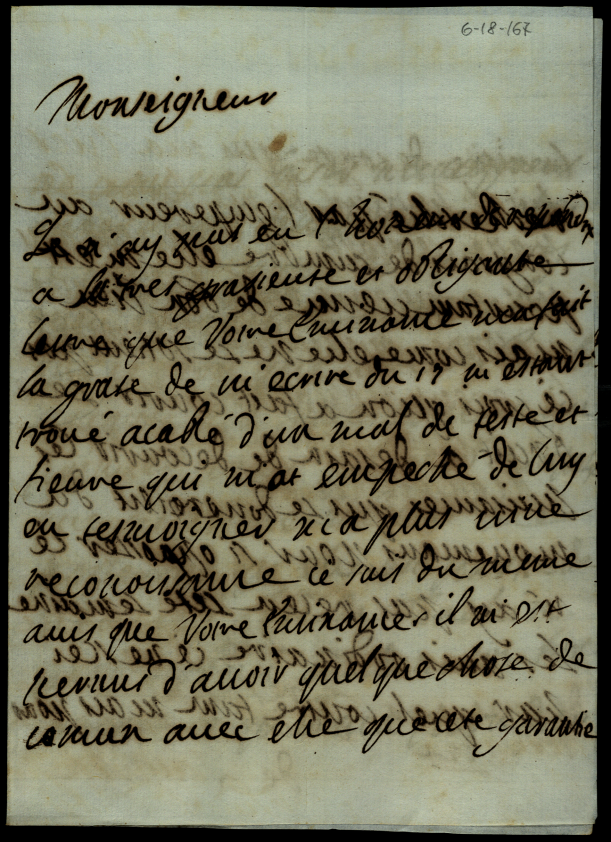 6-18-167
Monseigneur
Je n'ay pas eu l'honneur de repondre
a la tres gratieuse et obligante
lettre que Votre Eminance m'a fait
la grase de m'ecrire du 17 m'estant
trouvé acablé d'un mal de teste et
fieuvre qui m'at empeché de luy
en tesmoigner ma plus vive
reconoissance je suis du meme
auis que Votre Eminance s'il m'est
permis d'auoir quelque chose de
comun avec elle que cete garantie